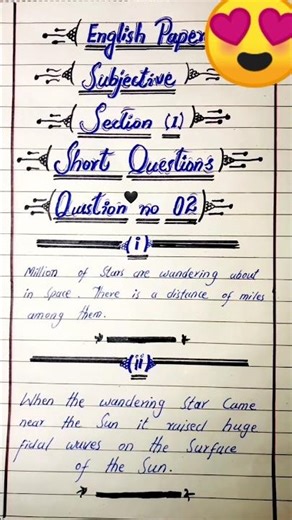 English Paper
Subjective
Section (I)
Short Questions
Qustion no 02
(i)
Million of Stars are wandering about
in Space. There is a distance of miles
among them.
(ii)
When the wandering Star Came
near the Sun it raised huge
tidal waves on the Surface
of the Sun.